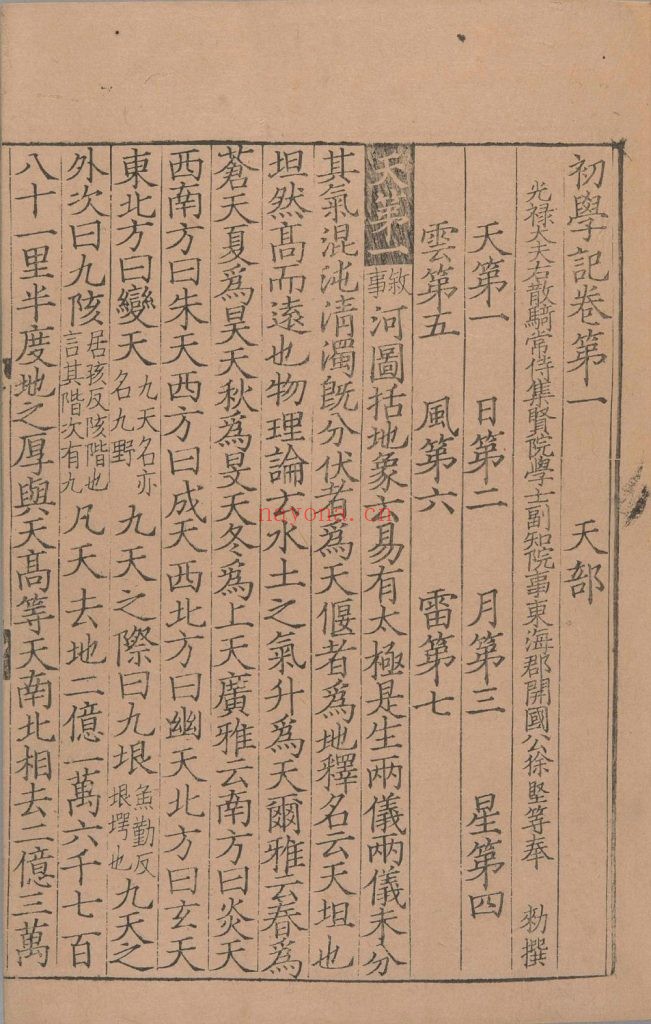 初學記卷第一　天部
光禄大夫右散騎常侍集賢院學士副知院事東海郡開國公徐堅等奉　勑撰
天第一　日第二　月第三　星第四
雲第五　風第六　雷第七
天第一 敘事 河圖括地象云易有太極是生兩儀兩儀未分
其氣混沌清濁旣分伏者爲天偃者爲地釋名云天坦也
坦然髙而遠也物理論云水土之氣升爲天爾雅云春爲
蒼天夏爲昊天秋爲旻天冬爲上天廣雅云南方曰炎天
西南方曰朱天西方曰成天西北方曰幽天北方曰玄天
東北方曰變天 九天名亦名九野 九天之際曰九垠 魚勤反垠堮也 九天之
外次曰九陔 居孩反陔階也言其階次有九 凡天去地二億一萬六千七百
八十一里半度地之厚與天髙等天南北相去二億三萬
nayona.cn